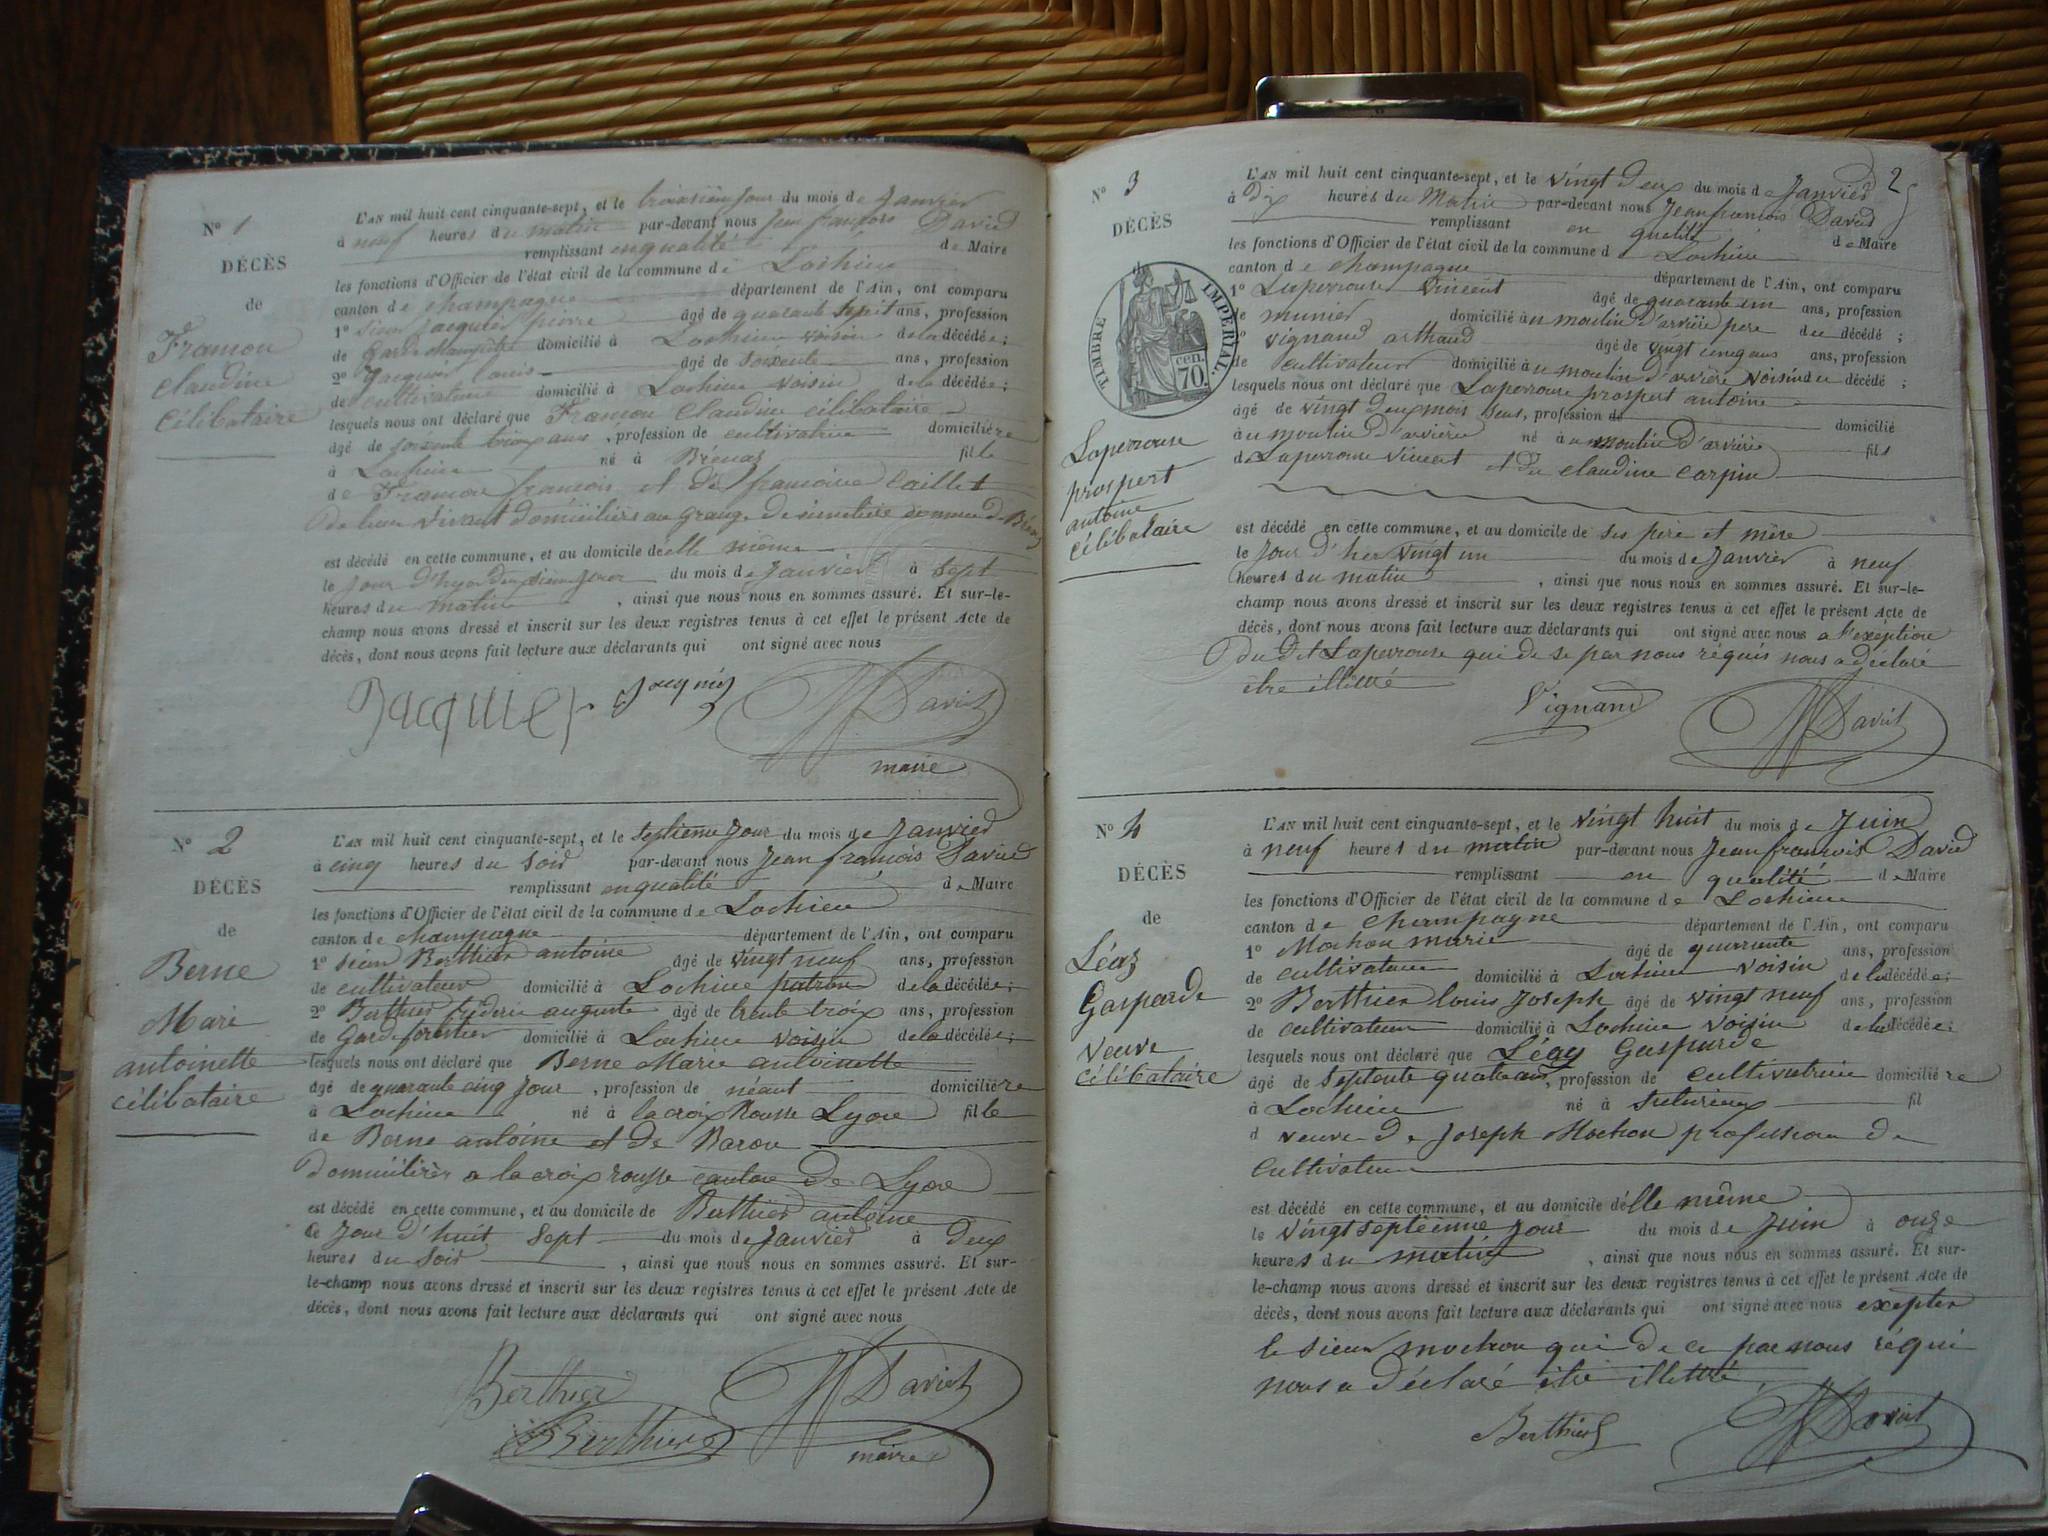 N° 1
DÉCÈS
de
Framon
claudine
célibataire
L'AN mil huit cent cinquante-sept, et le troisième jour du mois de Janvier
à neuf heures du matin par-devant nous Jean françois David
remplissant en qualité de Maire
les fonctions d'Officier de l'état civil de la commune de Lochieu
canton de champagne département de l'Ain, ont comparu
1° sieur Jacquier pierre âgé de quarante sept ans, profession
de garde champêtre domicilié à Lochieu voisin de la décédée;
2° Jacquier louis âgé de soixante ans, profession
de cultivateur domicilié à Lochieu voisin de la décédée;
lesquels nous ont déclaré que Framon claudine célibataire
âgé de soixante trois ans, profession de cultivatrice domiciliére
à Lochieu né à Brenaz fille
de Framon françois et de françoise Caillet
de leur vivant domiciliés au grange de cimetière commune de Brenaz
est décédé en cette commune, et au domicile de elle même
le jour d'hyer deuxième jour du mois de Janvier à sept
heures du matin, ainsi que nous nous en sommes assuré. Et sur-le-
champ nous avons dressé et inscrit sur les deux registres tenus à cet effet le présent Acte de
décès, dont nous avons fait lecture aux déclarants qui ont signé avec nous
Jacquier Jacquier David
maire
N° 2
DÉCÈS
de
Berne
Mari
antoinette
célibataire
L'AN mil huit cent cinquante-sept, et le septième jour du mois de Janvier
à cinq heures du soir par-devant nous Jean françois David
remplissant en qualité de Maire
les fonctions d'Officier de l'état civil de la commune de Lochieu
canton de champagne département de l'Ain, ont comparu
1° sieur Berthier antoine âgé de vingt neuf ans, profession
de cultivateur domicilié à Lochieu patron de la décédée;
2° Berthier frederic auguste âgé de trente troix ans, profession
de Garde forestier domicilié à Lochieu voisin de la décédée;
lesquels nous ont déclaré que Berne Marie antoinette
âgé de quarante cinq jour, profession de néant domiciliére
à Lochieu né à la croix Rousse Lyon fille
de Berne antoine et de Baron
domiciliés a la croix rousse canton de Lyon
est décédé en cette commune, et au domicile de Berthier antoine
ce jour d'huit sept du mois de Janvier à deux
heures du soir, ainsi que nous nous en sommes assuré. Et sur-
le-champ nous avons dressé et inscrit sur les deux registres tenus à cet effet le présent Acte de
décès, dont nous avons fait lecture aux déclarants qui ont signé avec nous
Berthier David
Berthier maire
2
N° 3
DÉCÈS
TIMBRE IMPÉRIAL.
cen.
70.
Laperrouse
prospert
antoine
célibataire
L'AN mil huit cent cinquante-sept, et le vingt deux du mois de Janvier
à dix heures du Matin par-devant nous Jean françois David
remplissant en qualité de Maire
les fonctions d'Officier de l'état civil de la commune de Lochieu
canton de champagne département de l'Ain, ont comparu
1° Laperrouse vincent âgé de quarante un ans, profession
de munier domicilié àu moulin d'arvière pere du décédé;
2° vignand arthaud âgé de vingt cinq ans ans, profession
de cultivateur domicilié àu moulin d'arvière voisin du décédé;
lesquels nous ont déclaré que Laperrouse prospert antoine
âgé de vingt deux mois, profession de domicilié
àu moulin d'arvière né àu moulin d'arvière fils
de Laperrouse vincent et de claudine carpin
est décédé en cette commune, et au domicile de ses père et mère
le jour d'hier vingt un du mois de Janvier à neuf
heures du matin, ainsi que nous nous en sommes assuré. Et sur-le-
champ nous avons dressé et inscrit sur les deux registres tenus à cet effet le présent Acte de
décès, dont nous avons fait lecture aux déclarants qui ont signé avec nous a l'exéption
du dit Laperrouse qui de se par nous réquis nous a déclaré
être illétré
Vignand David
N° 4
DÉCÈS
de
Léaz
Gasparde
veuve
célibataire
L'AN mil huit cent cinquante-sept, et le vingt huit du mois de Juin
à neuf heures du matin par-devant nous Jean françois David
remplissant en qualité de Maire
les fonctions d'Officier de l'état civil de la commune de Lochieu
canton de champagne département de l'Ain, ont comparu
1° Mochon marie âgé de quarante ans, profession
de cultivateur domicilié à Lochieu voisin de la décédée;
2° Berthier louis Joseph âgé de vingt neuf ans, profession
de cultivateur domicilié à Lochieu voisin de la décédée;
lesquels nous ont déclaré que Léaz Gasparde
âgé de septente quatre ans, profession de cultivatrice domiciliére
à Lochieu né à Sutrieux fil
d veuve de Joseph Mochon profession de
cultivateur
est décédé en cette commune, et au domicile délle même
le vingt septième jour du mois de Juin à onze
heures du matin, ainsi que nous nous en sommes assuré. Et sur-
le-champ nous avons dressé et inscrit sur les deux registres tenus à cet effet le présent Acte de
décès, dont nous avons fait lecture aux déclarants qui ont signé avec nous exépter
le sieur mochon qui de ce par nous réqui
nous a déclaré être illettré
Berthier David